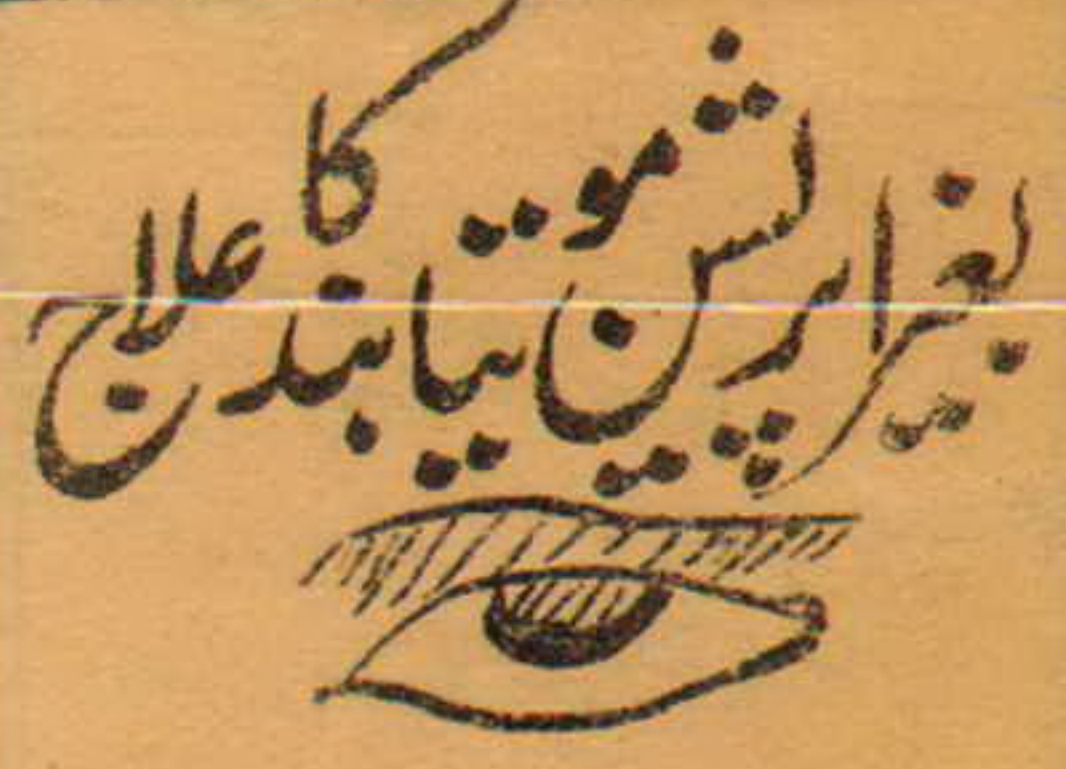 بغیر اپریشن موتیا بند کا علاج